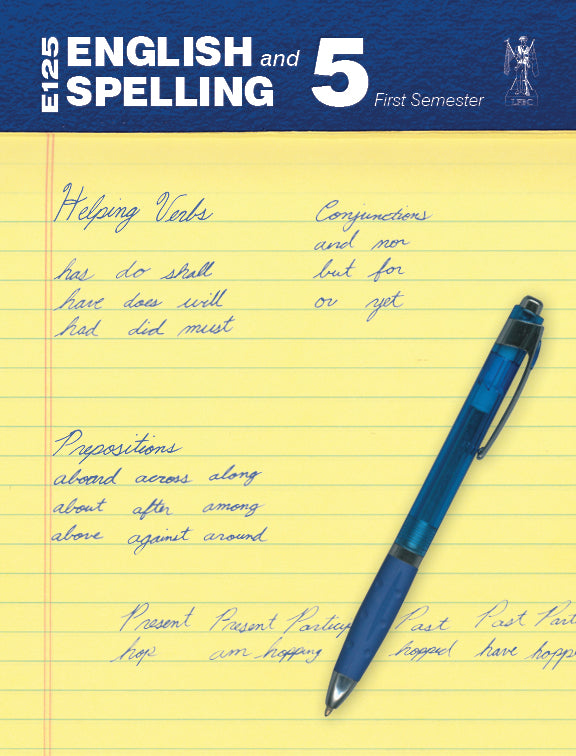 E125
ENGLISH and
SPELLING
5
First Semester
LFBC
Helping Verbs
has do shall
have does will
had did must
Conjunctions
and nor
but for
or yet
Prepositions
aboard across along
about after among
above against around
Present Present Particip Past Past Part
hop am hopping hopped have hopp